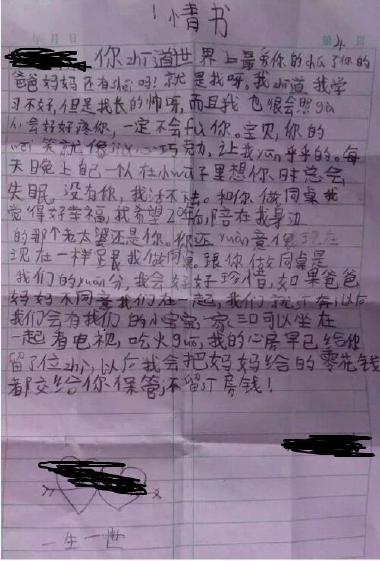 情书
年 月 日 第 页
4
你zhi道世界上最爱你的chu了你的
爸爸妈妈还有shei吗?就是我呀。我zhi道我学
习不好,但是我长的帅呀,而且我也很会
会好好疼你,一定不会fu你。宝贝,你的
笑就像巧克力,让我yun乎乎的。每
天晚上自己一个人在小wu子里想你时总会
失眠。没有你,我活不去。和你做同桌我
觉得好幸福,我希望20年后,陪在我身边
的那个老太婆还是你。你还yuan意像现在
现在一样是跟我做同桌。跟你做同桌是
我们的yuan分,我会好好珍惜,如果爸爸
妈妈不同意我们在一起,我们就,以后
我们会有我们的小宝宝一家三口可以坐在
一起看电视,吃火guo,我的心房早已给你
留了位zhi,以后我会把妈妈给的零花钱
都交给你保管,不留丁房钱!
一生一世